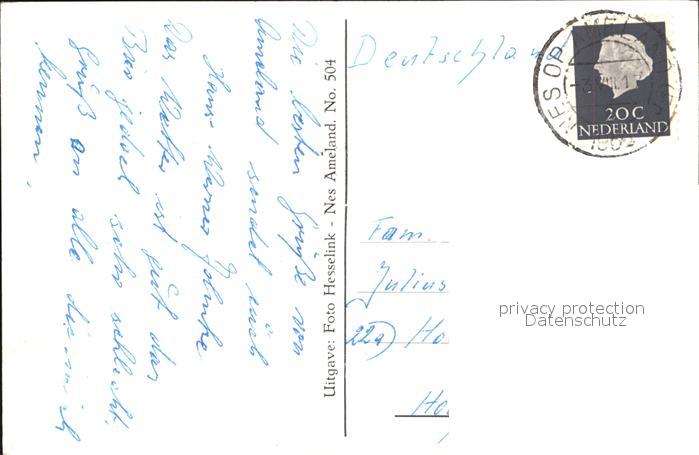 Die besten Grüße von
Ameland sendet euch
Hans-Werner
Das Wetter ist gut das
Bier jedoch sehr schlecht.
Gruß an alle die mich
kennen.
Uitgave: Foto Hesselink - Nes Ameland. No. 504
Deutschland
NES OP AMELAND
1962
20C
NEDERLAND
Fam.
Julius
22a) Ho
Ho
privacy protection
Datenschutz